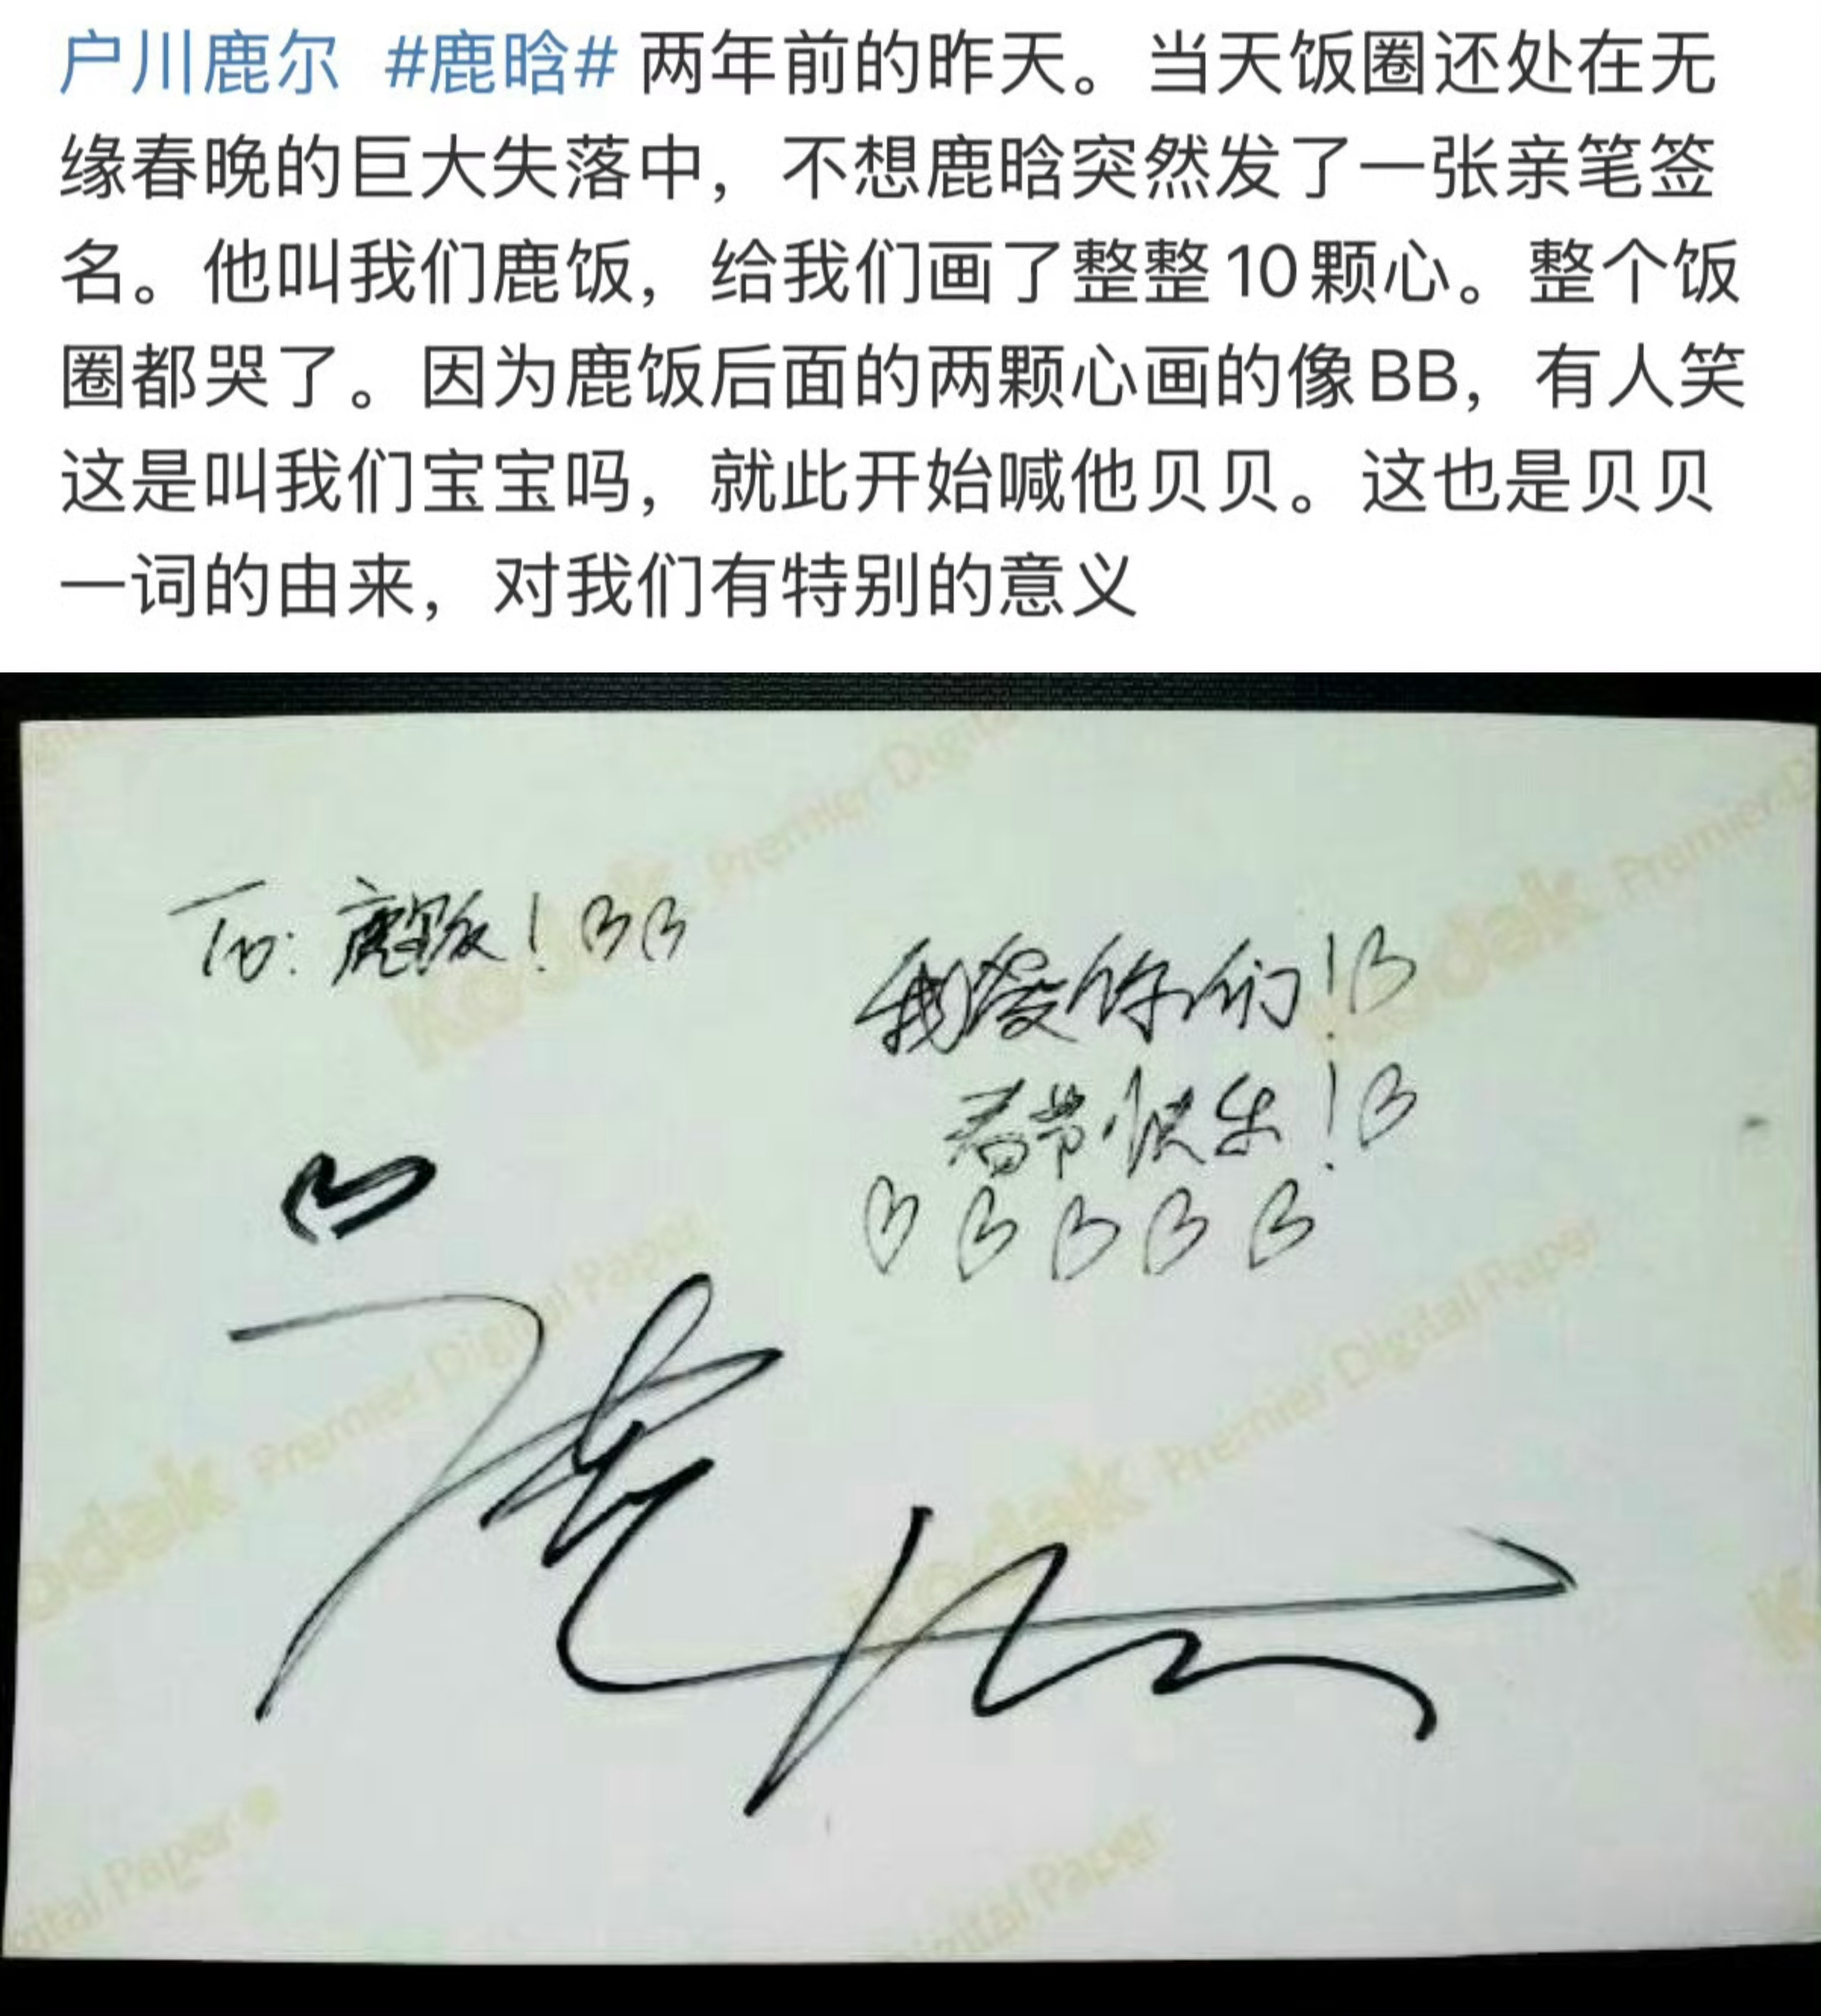 户川鹿尔 #鹿晗# 两年前的昨天。当天饭圈还处在无
缘春晚的巨大失落中，不想鹿晗突然发了一张亲笔签
名。他叫我们鹿饭，给我们画了整整10颗心。整个饭
圈都哭了。因为鹿饭后面的两颗心画的像BB，有人笑
这是叫我们宝宝吗，就此开始喊他贝贝。这也是贝贝
一词的由来，对我们有特别的意义
To: 鹿饭！
我爱你们！
春节快乐！
鹿晗
Kodak Premier Digital
Kodak Premier D
Kodak Premier Digital Paper
Kodak Premier Digital Paper
gital Paper
Digital Paper